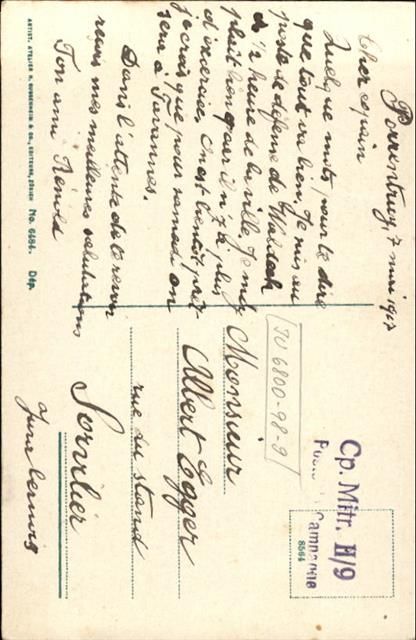 Porrentruy, 7 mai 1917
Cher copain
Quelque mots pour te dire
que tout va bien. Je suis au
poste de défense de Waldeck
de ½ heure de la ville. Je m'y
plaît bien, car il n'y a plus
d'exercice. On est bientôt prêt
je crois que pour samedi on
sera à Tavannes.
Dans l'attente de te revoir
reçois mes meilleures salutations
Ton ami
Monsieur
Albert Egger
rue du stand
Sonvilier
Jura bernois
Cp. Mitr. II/9
Campagne
8564
IV 6800-98-9
ARTIST. ATELIER H. GUGGENHEIM & CO., EDITEURS, ZÜRICH No. 6484. Dép.